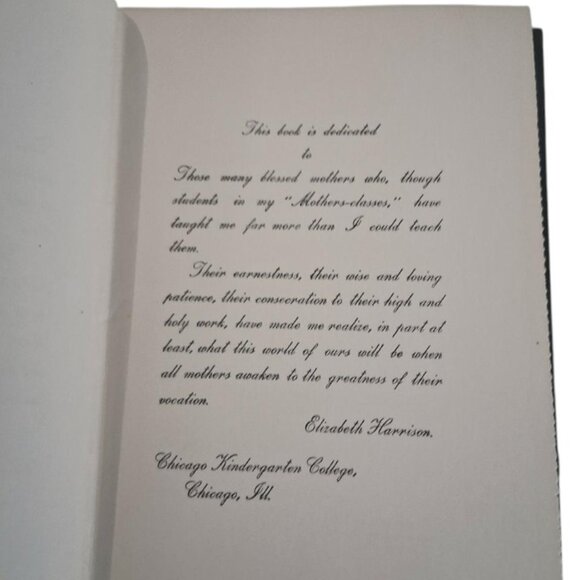 This book is dedicated
to
Those many blessed mothers who, though
students in my "Mothers-classes," have
taught me far more than I could teach
them.
Their earnestness, their wise and loving
patience, their consecration to their high and
holy work, have made me realize, in part at
least, what this world of ours will be when
all mothers awaken to the greatness of their
vocation.
Elizabeth Harrison.
Chicago Kindergarten College,
Chicago, Ill.